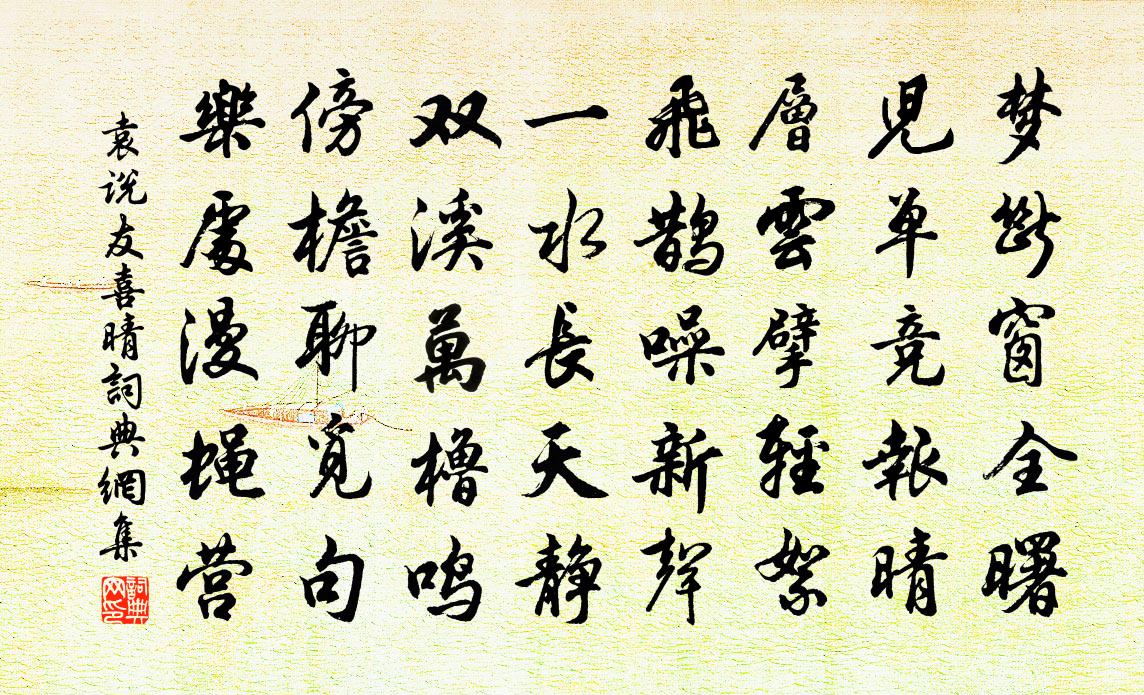 梦断窗全曙
児单竞報晴
層雲擘輕絮
飛鹊噪新聲
一水長天静
双溪萬櫓鸣
傍檐聊觅句
樂處漫蝇营
袁说友喜晴詞典網集
詞典网印